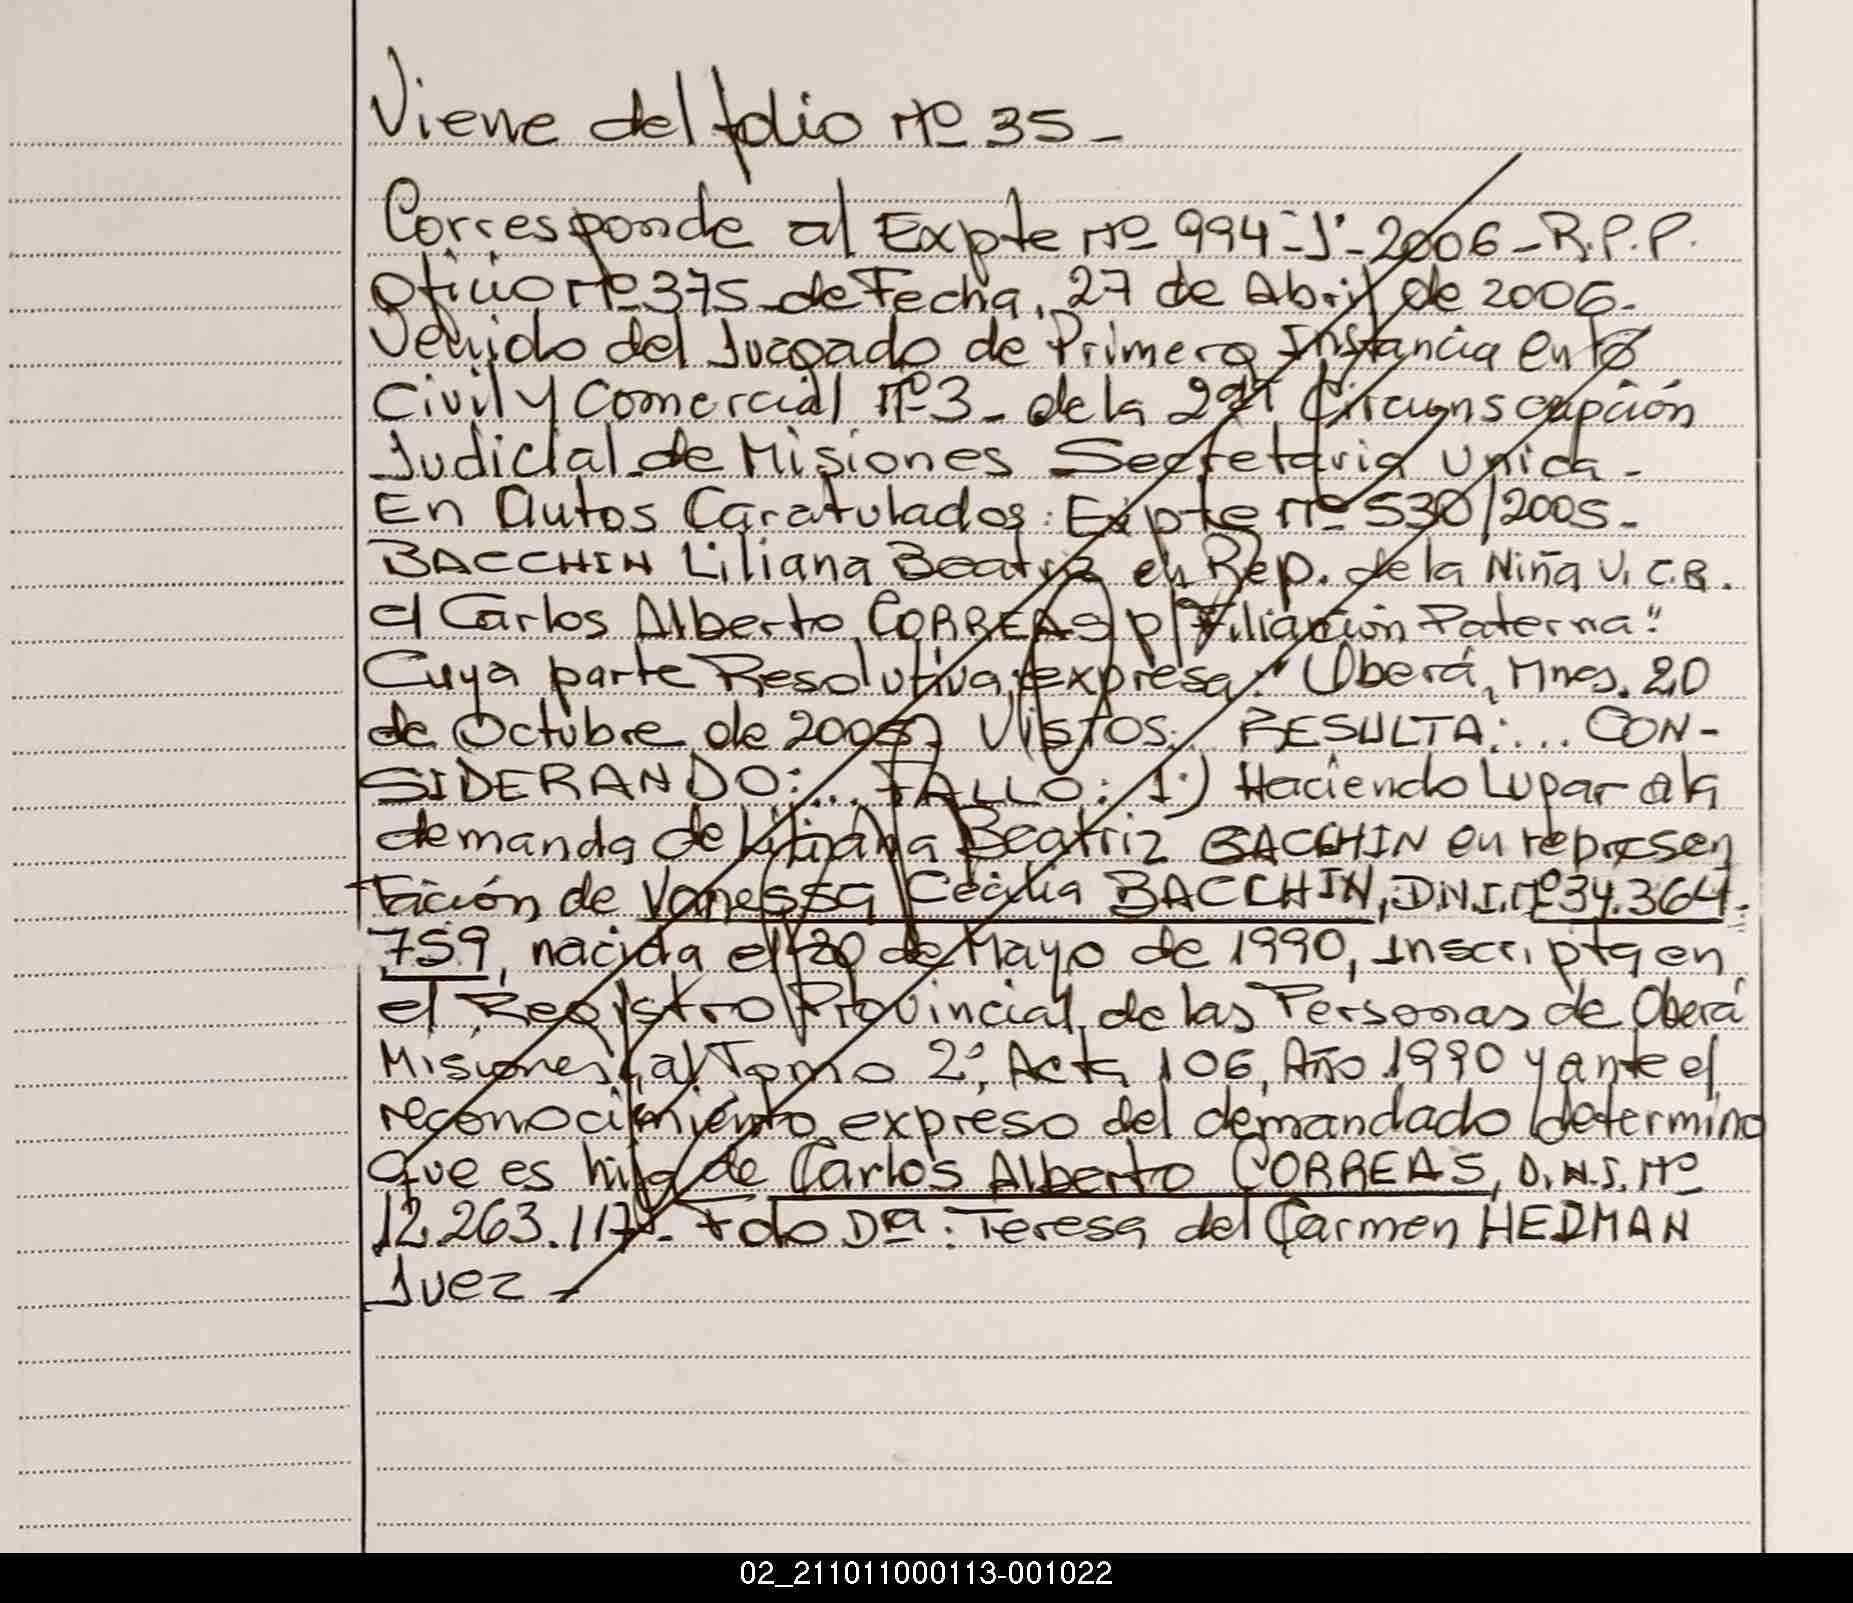 Viene del folio Nº 35-
Corresponde al Expte Nº 994-"J"-2006-R.P.P.
Oficio Nº 375 de Fecha, 27 de Abril de 2006-
Venido del Juzgado de Primera Instancia en lo
Civil y Comercial Nº 3- de la 2da Circunscripción
Judicial de Misiones Secretaria Unica-
En Autos Caratulados: Expte Nº 530/2005-
BACCHIN Liliana Beatriz en Rep. de la Niña V.C.B.
c/ Carlos Alberto CORREAS p/ Filiación Paterna"
Cuya parte Resolutiva expresa: "Oberá, Mnes. 20
de Octubre de 2005, Vistos:.. RESULTA:... CON-
SIDERANDO:... FALLO: 1º) Haciendo Lugar a la
demanda de Liliana Beatriz BACCHIN en represen
tación de Vanessa Cecilia BACCHIN, D.N.I.Nº 34.364.
759, nacida el 20 de Mayo de 1990, Inscripta en
el Registro Provincial de las Personas de Oberá
Misiones, al Tomo 2º, Acta 106, Año 1990 y ante el
reconocimiento expreso del demandado determino
que es hija de Carlos Alberto CORREAS, D.N.I. Nº
12.263.117-. Fdo Dra: Teresa del Carmen HEDMAN
Juez-
02_211011000113-001022